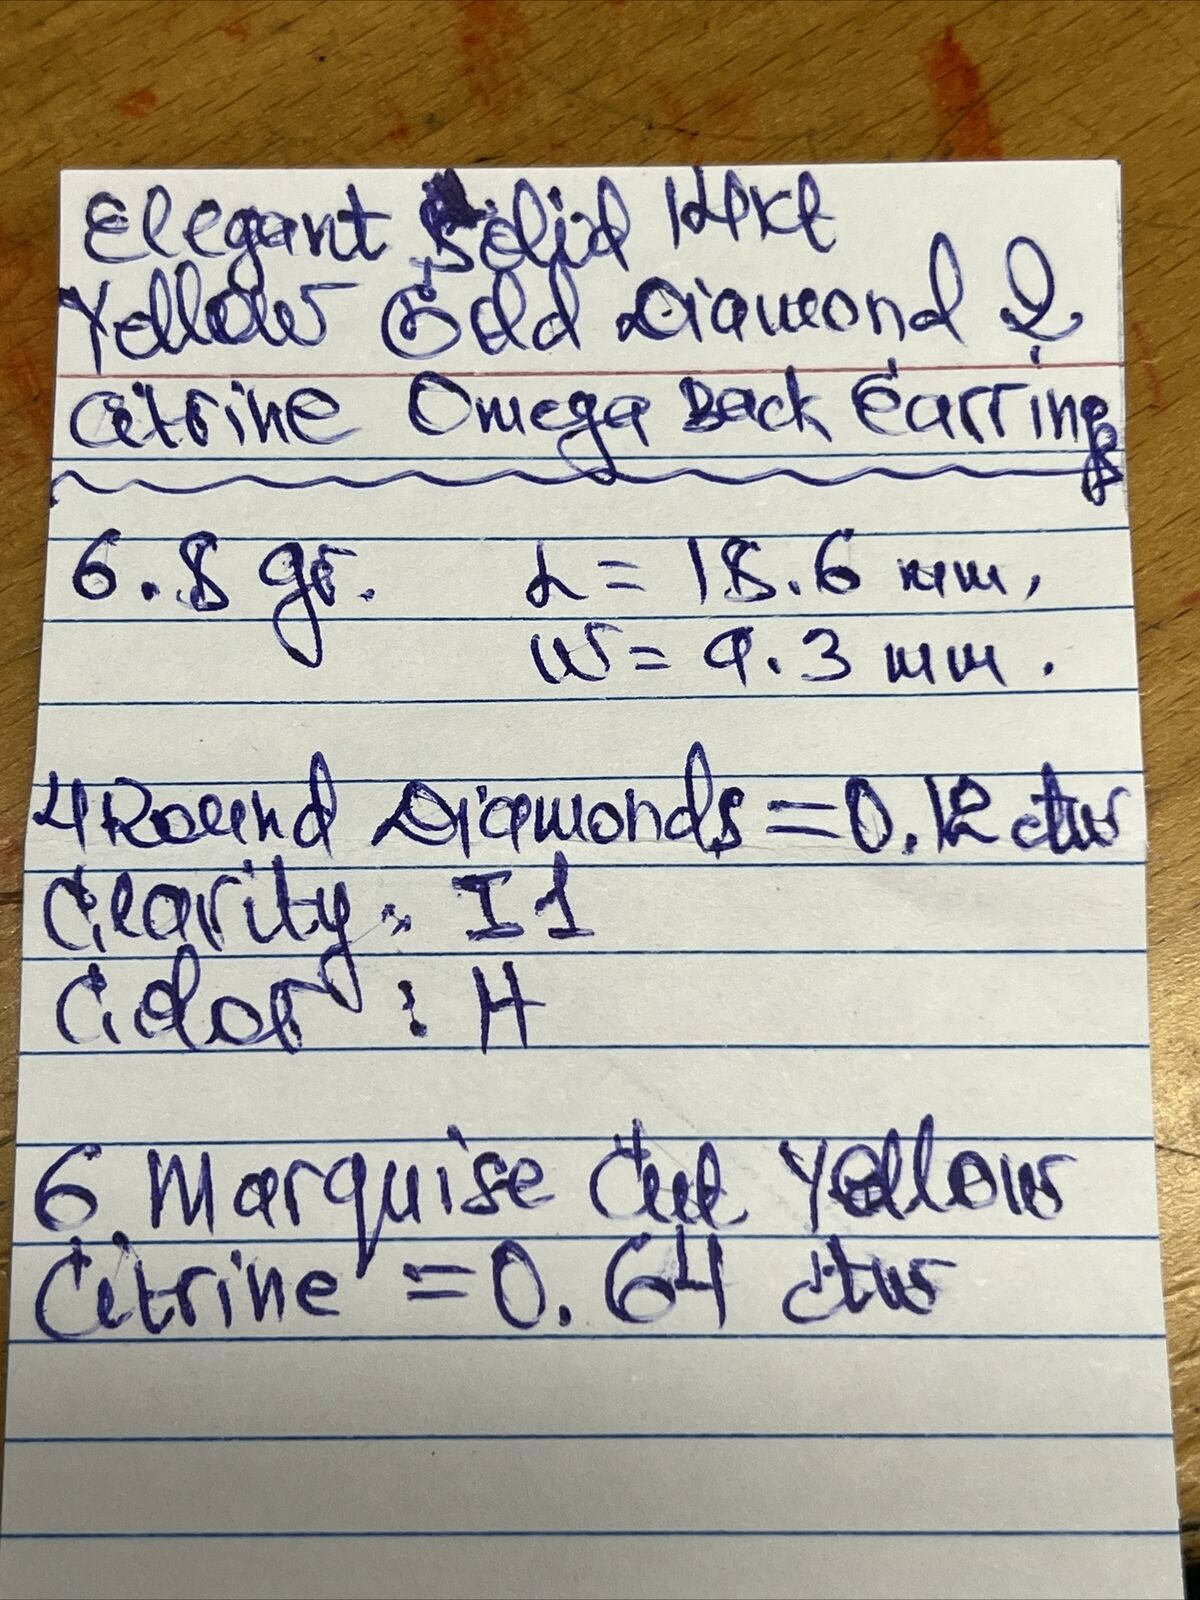 Elegant Solid 14kt
Yellow Gold Diamond &
Citrine Omega Back Earrings
6.8 gr. L = 18.6 mm,
W = 9.3 mm.
4 Round Diamonds = 0.12 ctw
Clarity: I1
Color: H
6 Marquise Cut Yellow
Citrine = 0.64 ctw